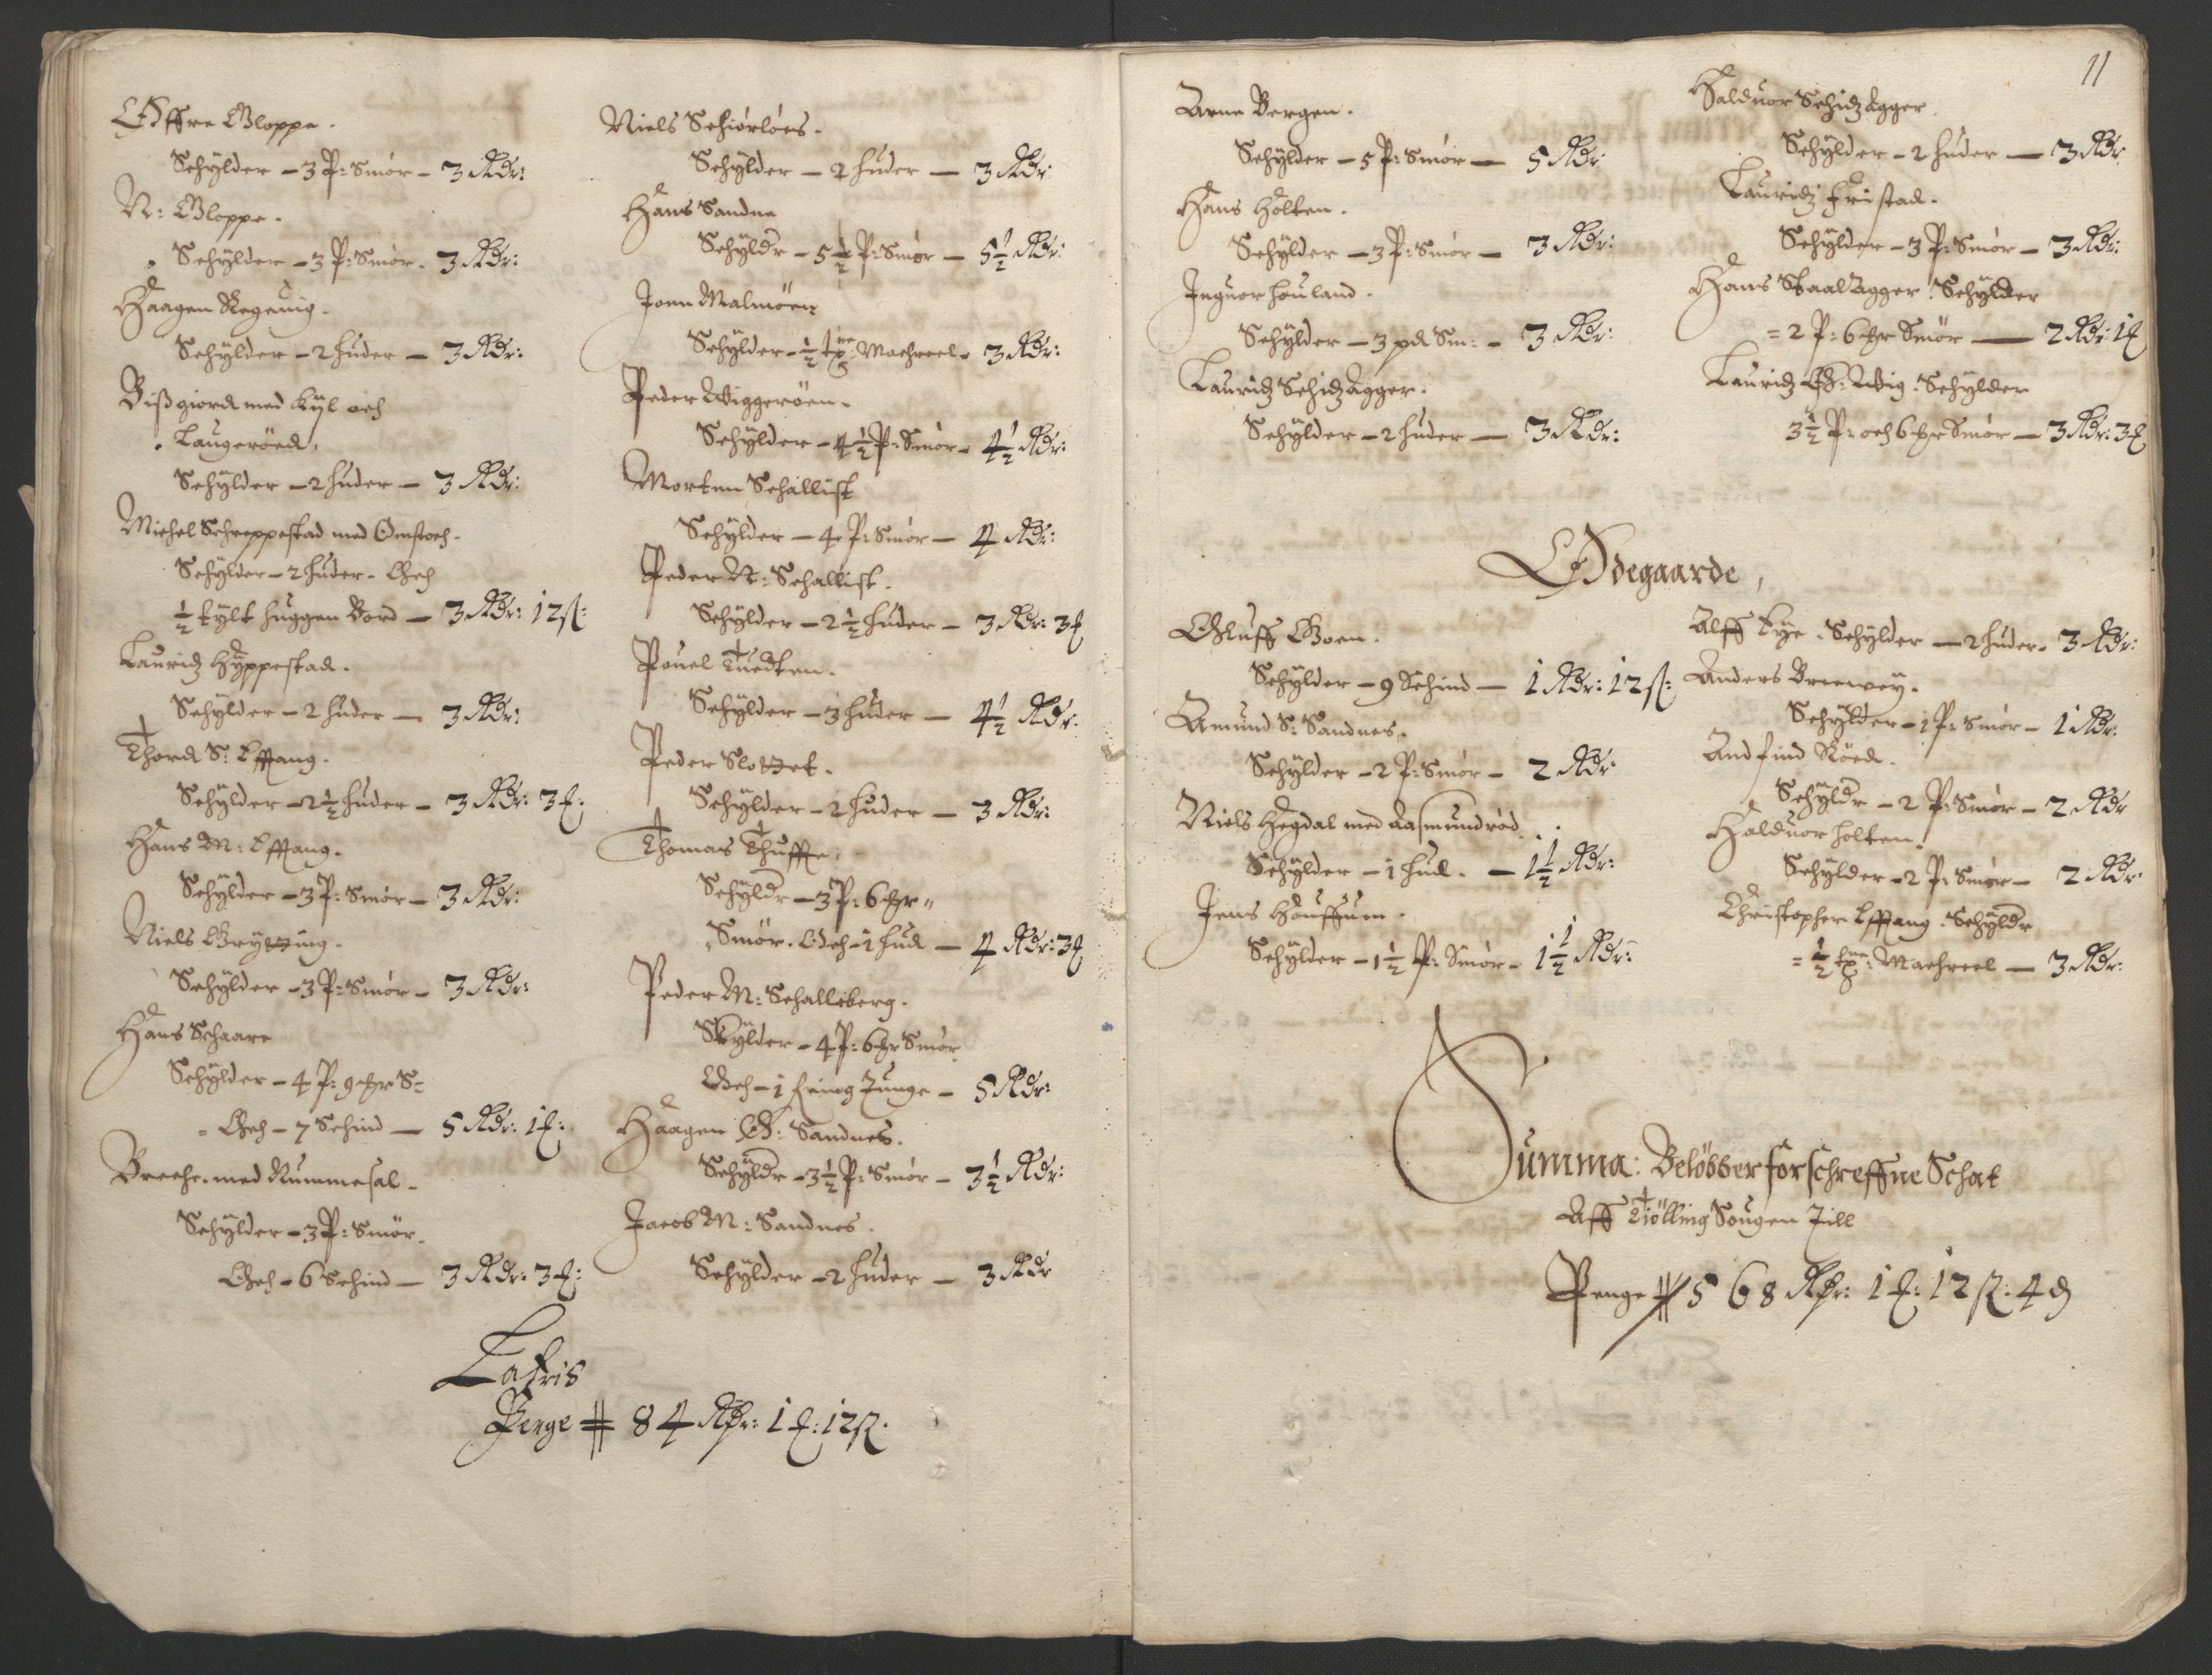 Øffre Gloppe.
Schylder – 3 P: Smör – 3 Rdr:
N: Gloppe.
Schylder – 3 P: Smör. 3 Rdr:
Haagen Regenig.
Schylder – 2 huder – 3 Rdr:
Bissgiord med Kyl och
Laugeröed,
Schylder – 2 huder – 3 Rdr:
Michel Schreppestad med Omstoch.
Schylder – 2 huder. Och
½ tylt huggen Bord – 3 Rdr: 12 ß:
Lauridz Hyppestad.
Schylder – 2 huder – 3 Rdr:
Thord S: Efftang.
Schylder – 2½ huder – 3 Rdr: 3 ₰:
Hans N: Efftang.
Schylder – 3 P: Smör – 3 Rdr:
Niels Grytting.
Schylder – 3 P: Smör – 3 Rdr:
Hans Schaare
Schylder – 4 P: 9 mr S:
Och – 7 Schind – 5 Rdr: 1 ₰:
Breche. med Rummesal.
Schylder – 3 P: Smör.
Och – 6 Schind – 3 Rdr: 3 ₰:
Niels Schiörlöes.
Schylder – 2 huder – 3 Rdr:
Hans Sandne
Schyldr – 5½ P: Smör – 5½ Rdr:
Jonn Malmöen
Schylder – ½ tne: Machreel. 3 Rdr:
Peder Wiggeröen.
Schylder – 4½ P: Smör – 4½ Rdr:
Morten Schallist
Schylder – 4 P: Smör – 4 Rdr:
Peder N: Schallist.
Schylder – 2½ huder – 3 Rdr: 3 ₰
Pouel Tuedten.
Schylder – 3 huder – 4½ Rdr:
Peder Slottet.
Schylder – 2 huder – 3 Rdr:
Thomas Thuffte,
Schyldr – 3 P: 6 mr
Smör. Och – 1 hud – 4 Rdr: 3 ₰
Peder N: Schalleberg.
Skylder – 4 P: 6 mr Smör
Och – 1 feing Tunge – 5 Rdr:
Haagen Ø: Sandnes.
Schyldr – 3½ P: Smör – 3½ Rdr:
Jacob N: Sandnes.
Schylder – 2 huder – 3 Rdr
Latris
Penge # 84 Rdr: 1 ₰: 12 ß.
11
Arne Bergen.
Schylder – 5 P: Smör – 5 Rdr:
Hans Holten.
Schylder – 3 P: Smör – 3 Rdr:
Inguor Houland.
Schylder – 3 pd Sm: – 3 Rdr:
Lauridz Schidzagger.
Schylder – 2 huder – 3 Rdr:
Halduor Schidzagger.
Schylder – 2 huder – 3 Rdr
Lauridz Fristad.
Schylder – 3 P: Smör – 3 Rdr:
Hans Staalagger. Schylder
= 2 P: 6 mr Smör – 2 Rdr: 1 ₰
Lauridz Ø: Wiig. Schylder
3½ P: och 6 mr Smör – 3 Rdr: 3 ₰
Ødegaarde,
Oluff Goen.
Schylder – 9 Schind – 1 Rdr: 12 ß:
Amund S: Sandnes.
Schylder – 2 P: Smör – 2 Rdr
Niels Hegdal med Aasmundröd.
Schylder – 1 hud. – 1½ Rdr:
Jens Houffuen.
Schylder – 1½ P: Smör – 1½ Rdr:
Alff Lye. Schylder – 2 huder. 3 Rdr:
Anders Breewey.
Schylder – 1 P: Smör – 1 Rdr:
Andfind Röed.
Schyldr – 2 P: Smör – 2 Rdr
Halduor Holten.
Schylder – 2 P: Smör – 2 Rdr:
Christopher Efftang. Schyldr
= ½ tne: Machreel – 3 Rdr:
Summa: Belöbber forschreffne Schat
Aff Tiölling Sougen Till
Penge # 568 Rdr: 1 ₰: 12 ß: 4 ₰